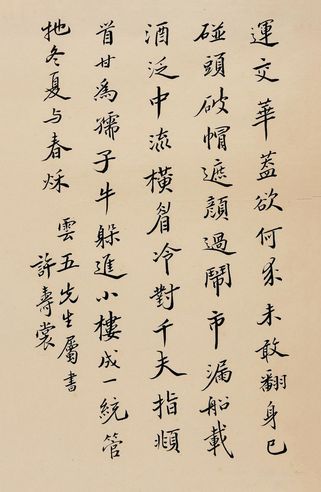 運交華蓋欲何求未敢翻身已
碰頭破帽遮顏過鬧市漏船載
酒泛中流橫眉冷對千夫指頫
首甘爲孺子牛躲進小樓成一統管
牠冬夏与春秌
雲五先生屬書
許壽裳